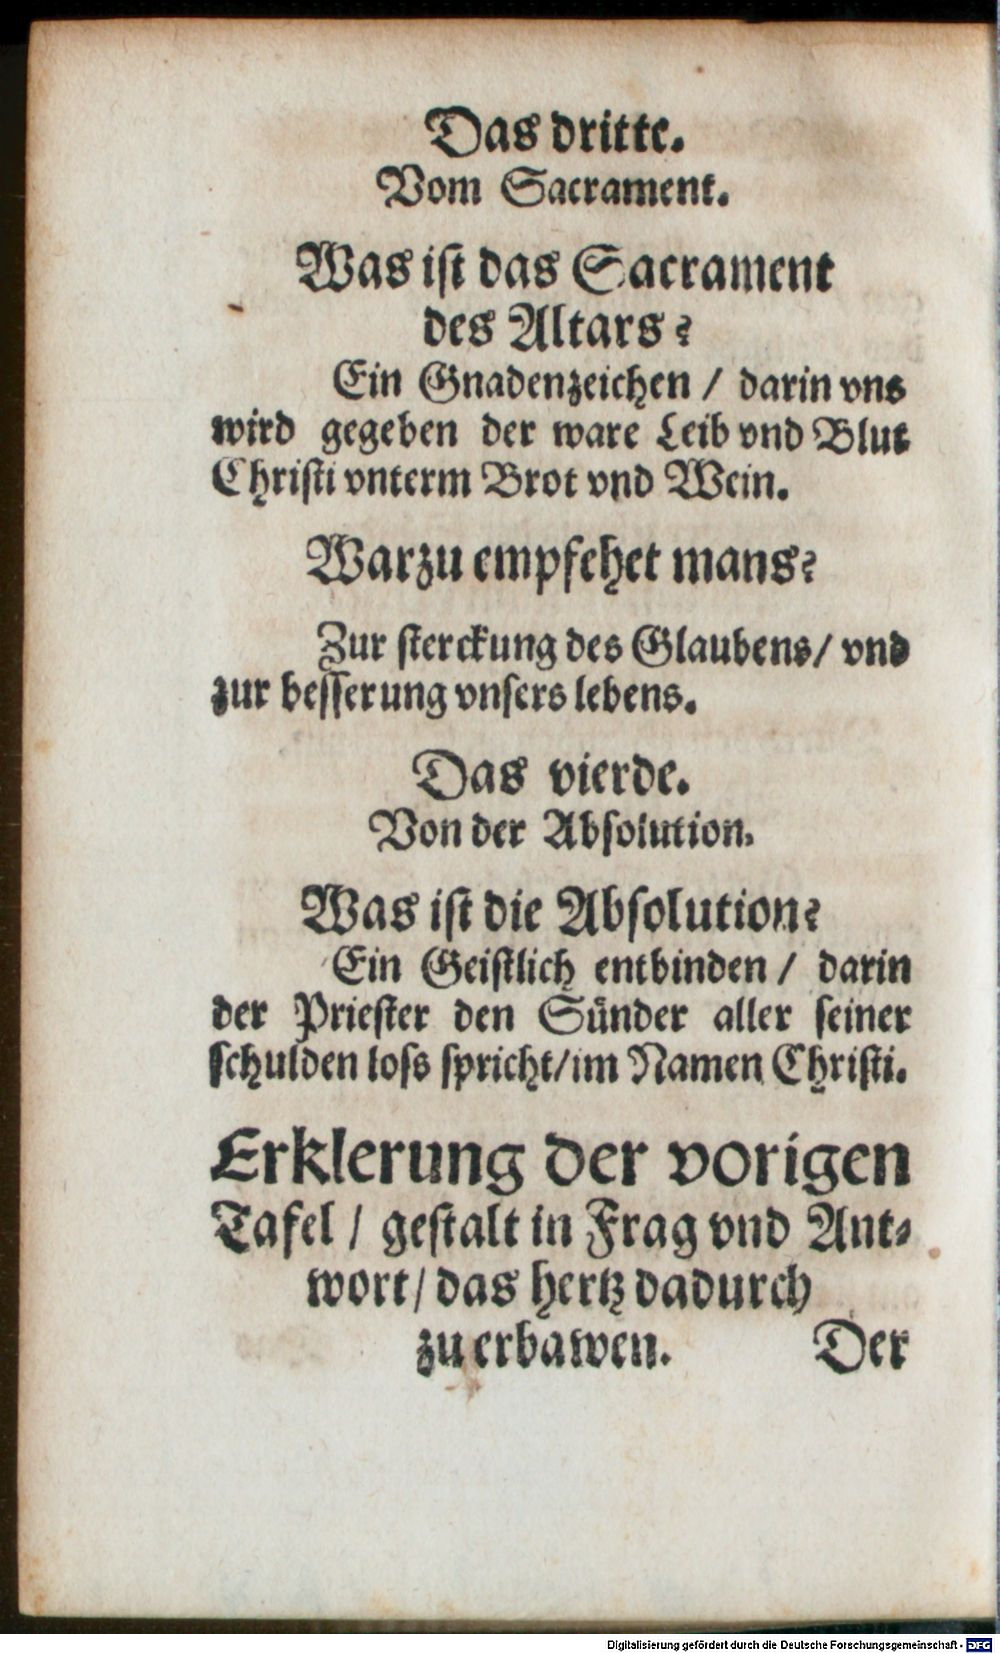 Das dritte.
Vom Sacrament.
Was iſt das Sacrament
des Altars?
Ein Gnadenzeichen / darin vns
wird gegeben der ware Leib vnd Blut
Chriſti vnterm Brot vnd Wein.
Warzu empfehet mans?
Zur ſterckung des Glaubens / vnd
zur beſſerung vnſers lebens.
Das vierde.
Von der Abſolution.
Was iſt die Abſolution?
Ein Geiſtlich entbinden / darin
der Prieſter den Sünder aller ſeiner
ſchulden loſs ſpricht / im Namen Chriſti.
Erklerung der vorigen
Tafel / geſtalt in Frag vnd Ant⸗
wort / das hertz dadurch
zu erbawen. Der
Digitalisierung gefördert durch die Deutsche Forschungsgemeinschaft - DFG